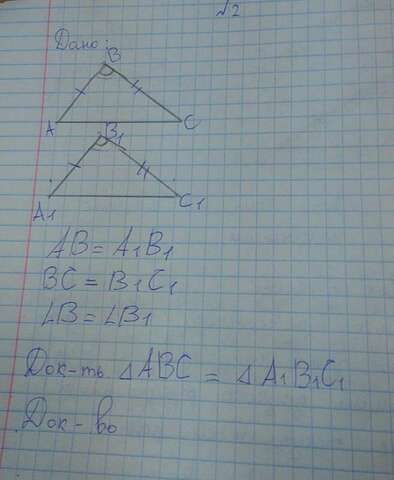 √2
Дано:
B
A C
B1
A1 C1
AB = A1B1
BC = B1C1
∠B = ∠B1
Док-ть ΔABC = ΔA1B1C1
Док-во